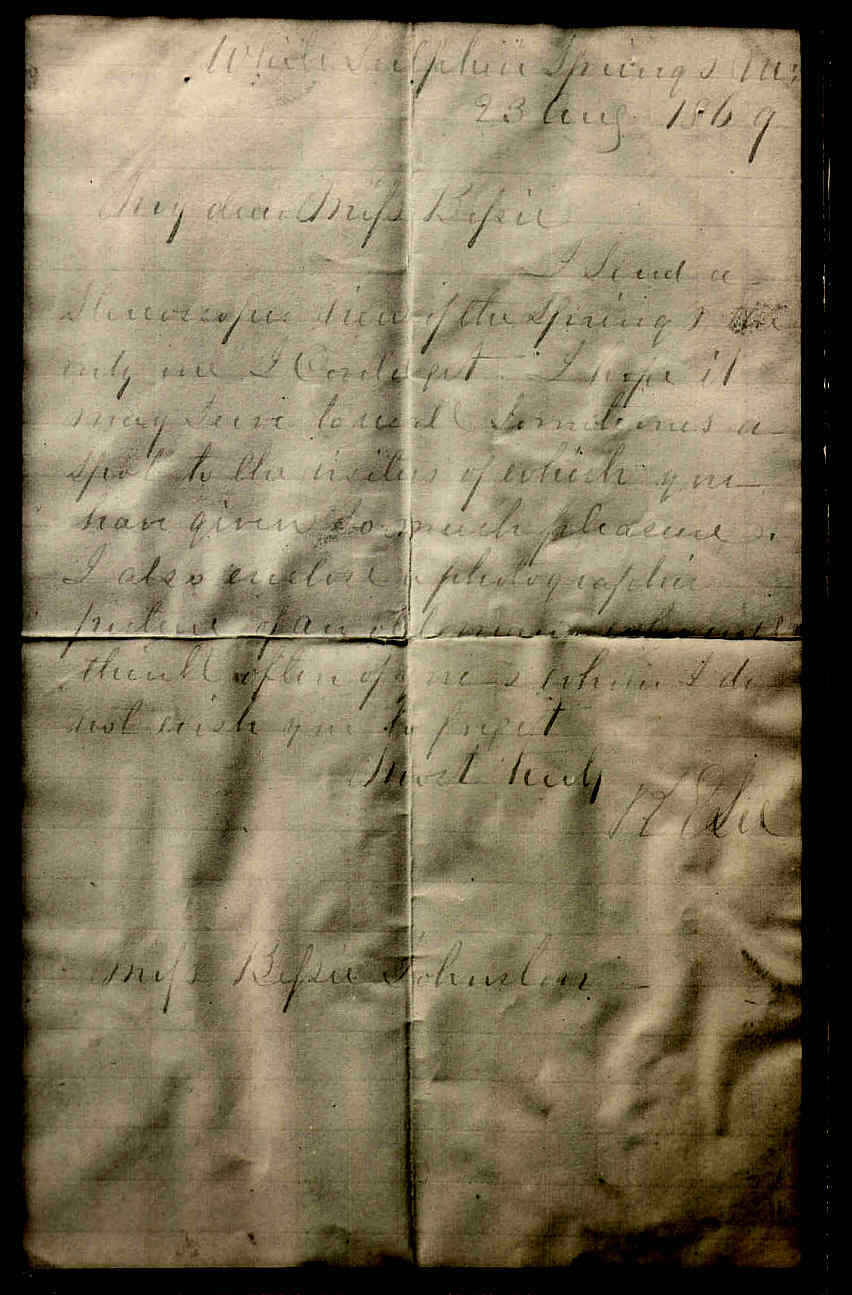 White Sulphur Springs
23 Aug 1869
My dear Miss Bessie
I send a
Stereoscopic view of the Springs the
only one I Could get. I hope it
may serve to recal Sometimes a
spot to the visitors of which you
have given so much pleasure.
I also enclose a photographic
picture of an old man who will
think often of you & whom I do
not wish you to forget
Most truly
R E Lee
Miss Bessie Johnston